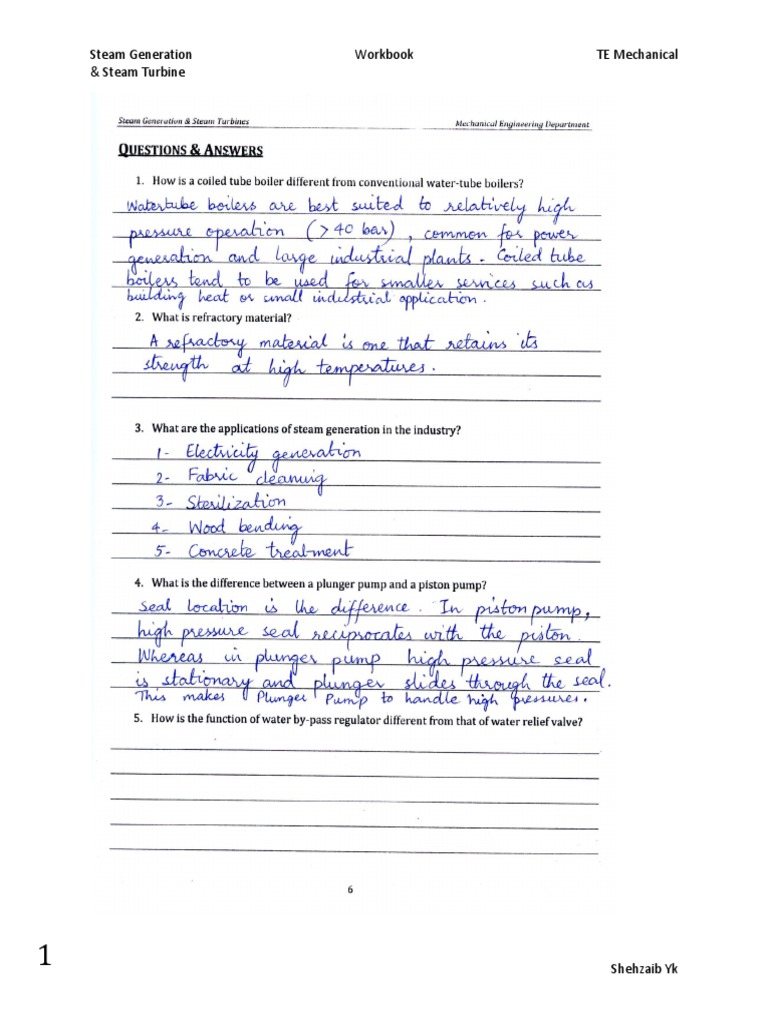 Steam Generation Workbook TE Mechanical
& Steam Turbine
Steam Generation & Steam Turbines Mechanical Engineering Department
QUESTIONS & ANSWERS
1. How is a coiled tube boiler different from conventional water-tube boilers?
Watertube boilers are best suited to relatively high
pressure operation (>40 bar), common for power
generation and large industrial plants. Coiled tube
boilers tend to be used for smaller services such as
building heat or small industrial application.
2. What is refractory material?
A refractory material is one that retains its
strength at high temperatures.
3. What are the applications of steam generation in the industry?
1- Electricity generation
2- Fabric cleaning
3- Sterilization
4- Wood bending
5- Concrete treatment
4. What is the difference between a plunger pump and a piston pump?
Seal location is the difference. In piston pump,
high pressure seal reciprocates with the piston.
Whereas in plunger pump high pressure seal
is stationary and plunger slides through the seal.
This makes Plunger Pump to handle high pressures.
5. How is the function of water by-pass regulator different from that of water relief valve?
6
1
Shehzaib Yk